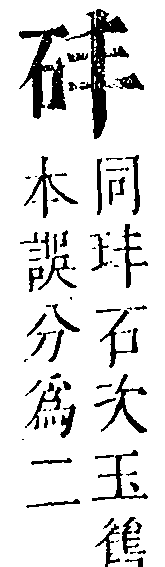 砗
同玤石次玉鶴
本誤分爲二